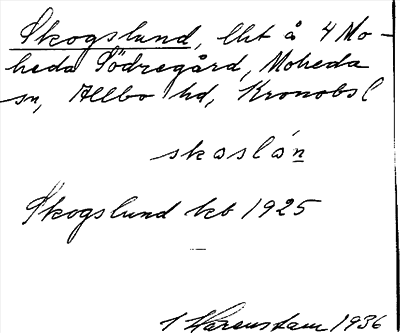 Skogslund, lht å 4 Mo-
heda Södregård, Moheda
sn, Allbo hd, Kronobsl
skoslón
Skogslund kb 1925
—
Warenstam 1936